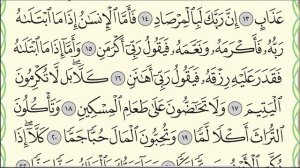 عَذَابٍ ١٣ إِنَّ رَبَّكَ لَبِٱلْمِرْصَادِ ١٤ فَأَمَّا ٱلْإِنسَـٰنُ إِذَا مَا ٱبْتَلَىٰهُ
رَبُّهُۥ فَأَكْرَمَهُۥ وَنَعَّمَهُۥ فَيَقُولُ رَبِّىٓ أَكْرَمَنِ ١٥ وَأَمَّآ إِذَا مَا ٱبْتَلَىٰهُ
فَقَدَرَ عَلَيْهِ رِزْقَهُۥ فَيَقُولُ رَبِّىٓ أَهَـٰنَنِ ١٦ كَلَّا ۖ بَل لَّا تُكْرِمُونَ
ٱلْيَتِيمَ ١٧ وَلَا تَحَـٰٓضُّونَ عَلَىٰ طَعَامِ ٱلْمِسْكِينِ ١٨ وَتَأْكُلُونَ
ٱلتُّرَاثَ أَكْلًا لَّمًّا ١٩ وَتُحِبُّونَ ٱلْمَالَ حُبًّا جَمًّا ٢٠ كَلَّآ إِذَا